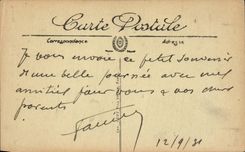 Carte Postale
Correspondance Adresse
Je vous envoie ce petit souvenir
d'une belle passée avec mes
amitiés pour vous & vos chers
parents
12/9/31